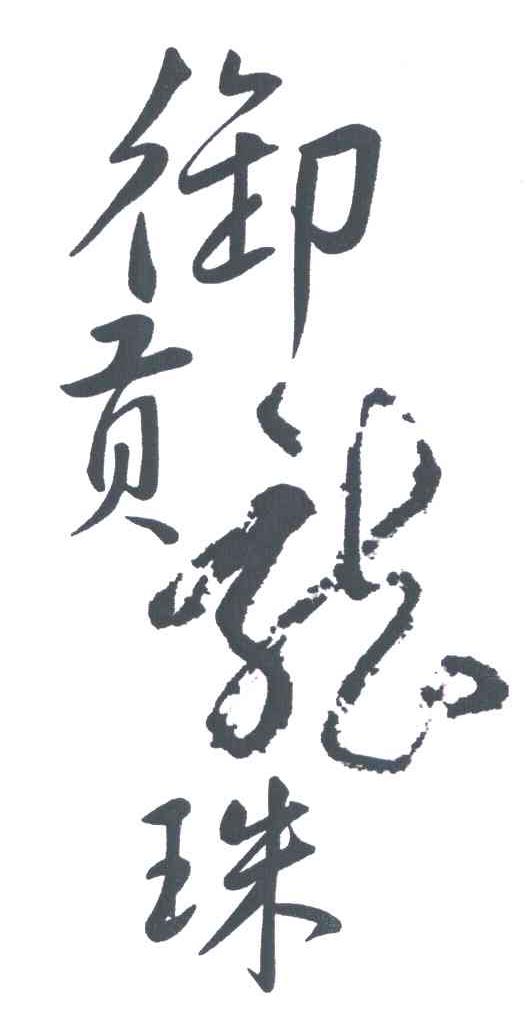 御贡龙珠